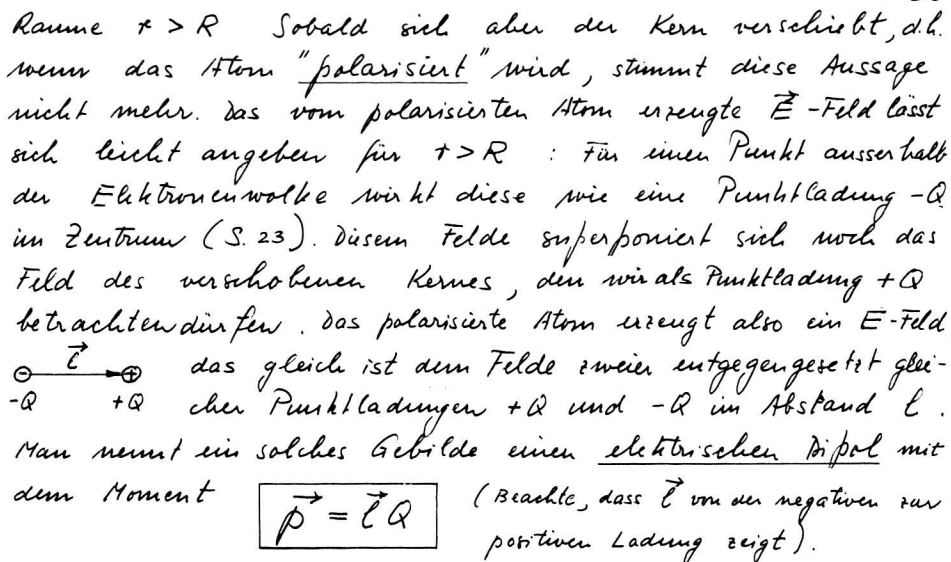 Raume r > R Sobald sich aber der Kern verschiebt, d.h.
wenn das Atom "polarisiert" wird, stimmt diese Aussage
nicht mehr. Das vom polarisierten Atom erzeugte E⃗-Feld lässt
sich leicht angeben für r > R : Für einen Punkt ausserhalb
der Elektronenwolke wirkt diese wie eine Punktladung -Q
im Zentrum (S. 23). Diesem Felde superponiert sich noch das
Feld des verschobenen Kernes, den wir als Punktladung +Q
betrachten dürfen. Das polarisierte Atom erzeugt also ein E-Feld
ℓ⃗ das gleich ist dem Felde zweier entgegengesetzt glei-
-Q +Q cher Punktladungen +Q und -Q im Abstand ℓ.
Man nennt ein solches Gebilde einen elektrischen Dipol mit
dem Moment p⃗ = ℓ⃗ Q (Beachte, dass ℓ⃗ von der negativen zur
positiven Ladung zeigt).